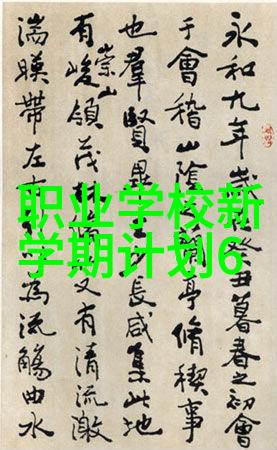 职业学校新
学期计划6
永和九年歲丑暮春之初會
于會稽山陰亭脩稧事
也羣賢畢長咸集此地
有崇山峻領茂林又有清流激
湍暎帶左為流觴曲水